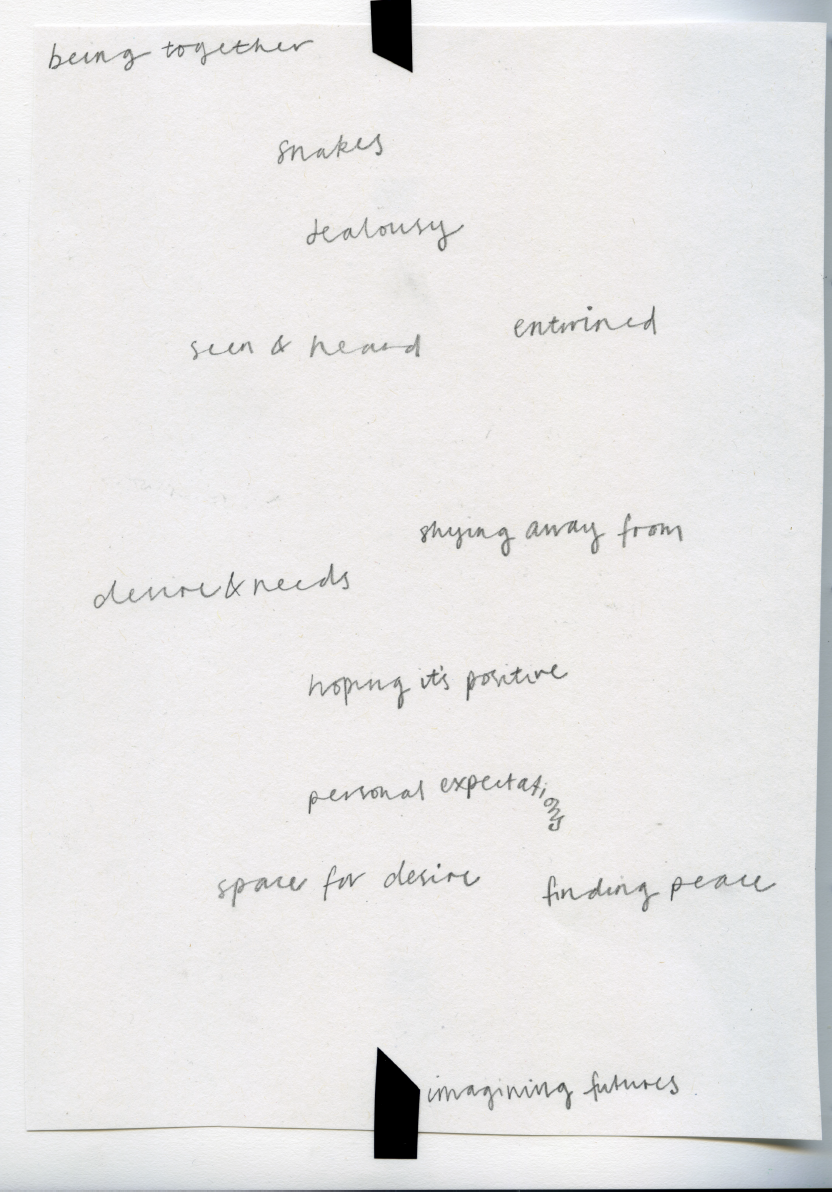 being together
snakes
jealousy
entwined
seen & heard
shying away from
desire & needs
hoping it's positive
personal expectations
space for desire
finding peace
imagining futures